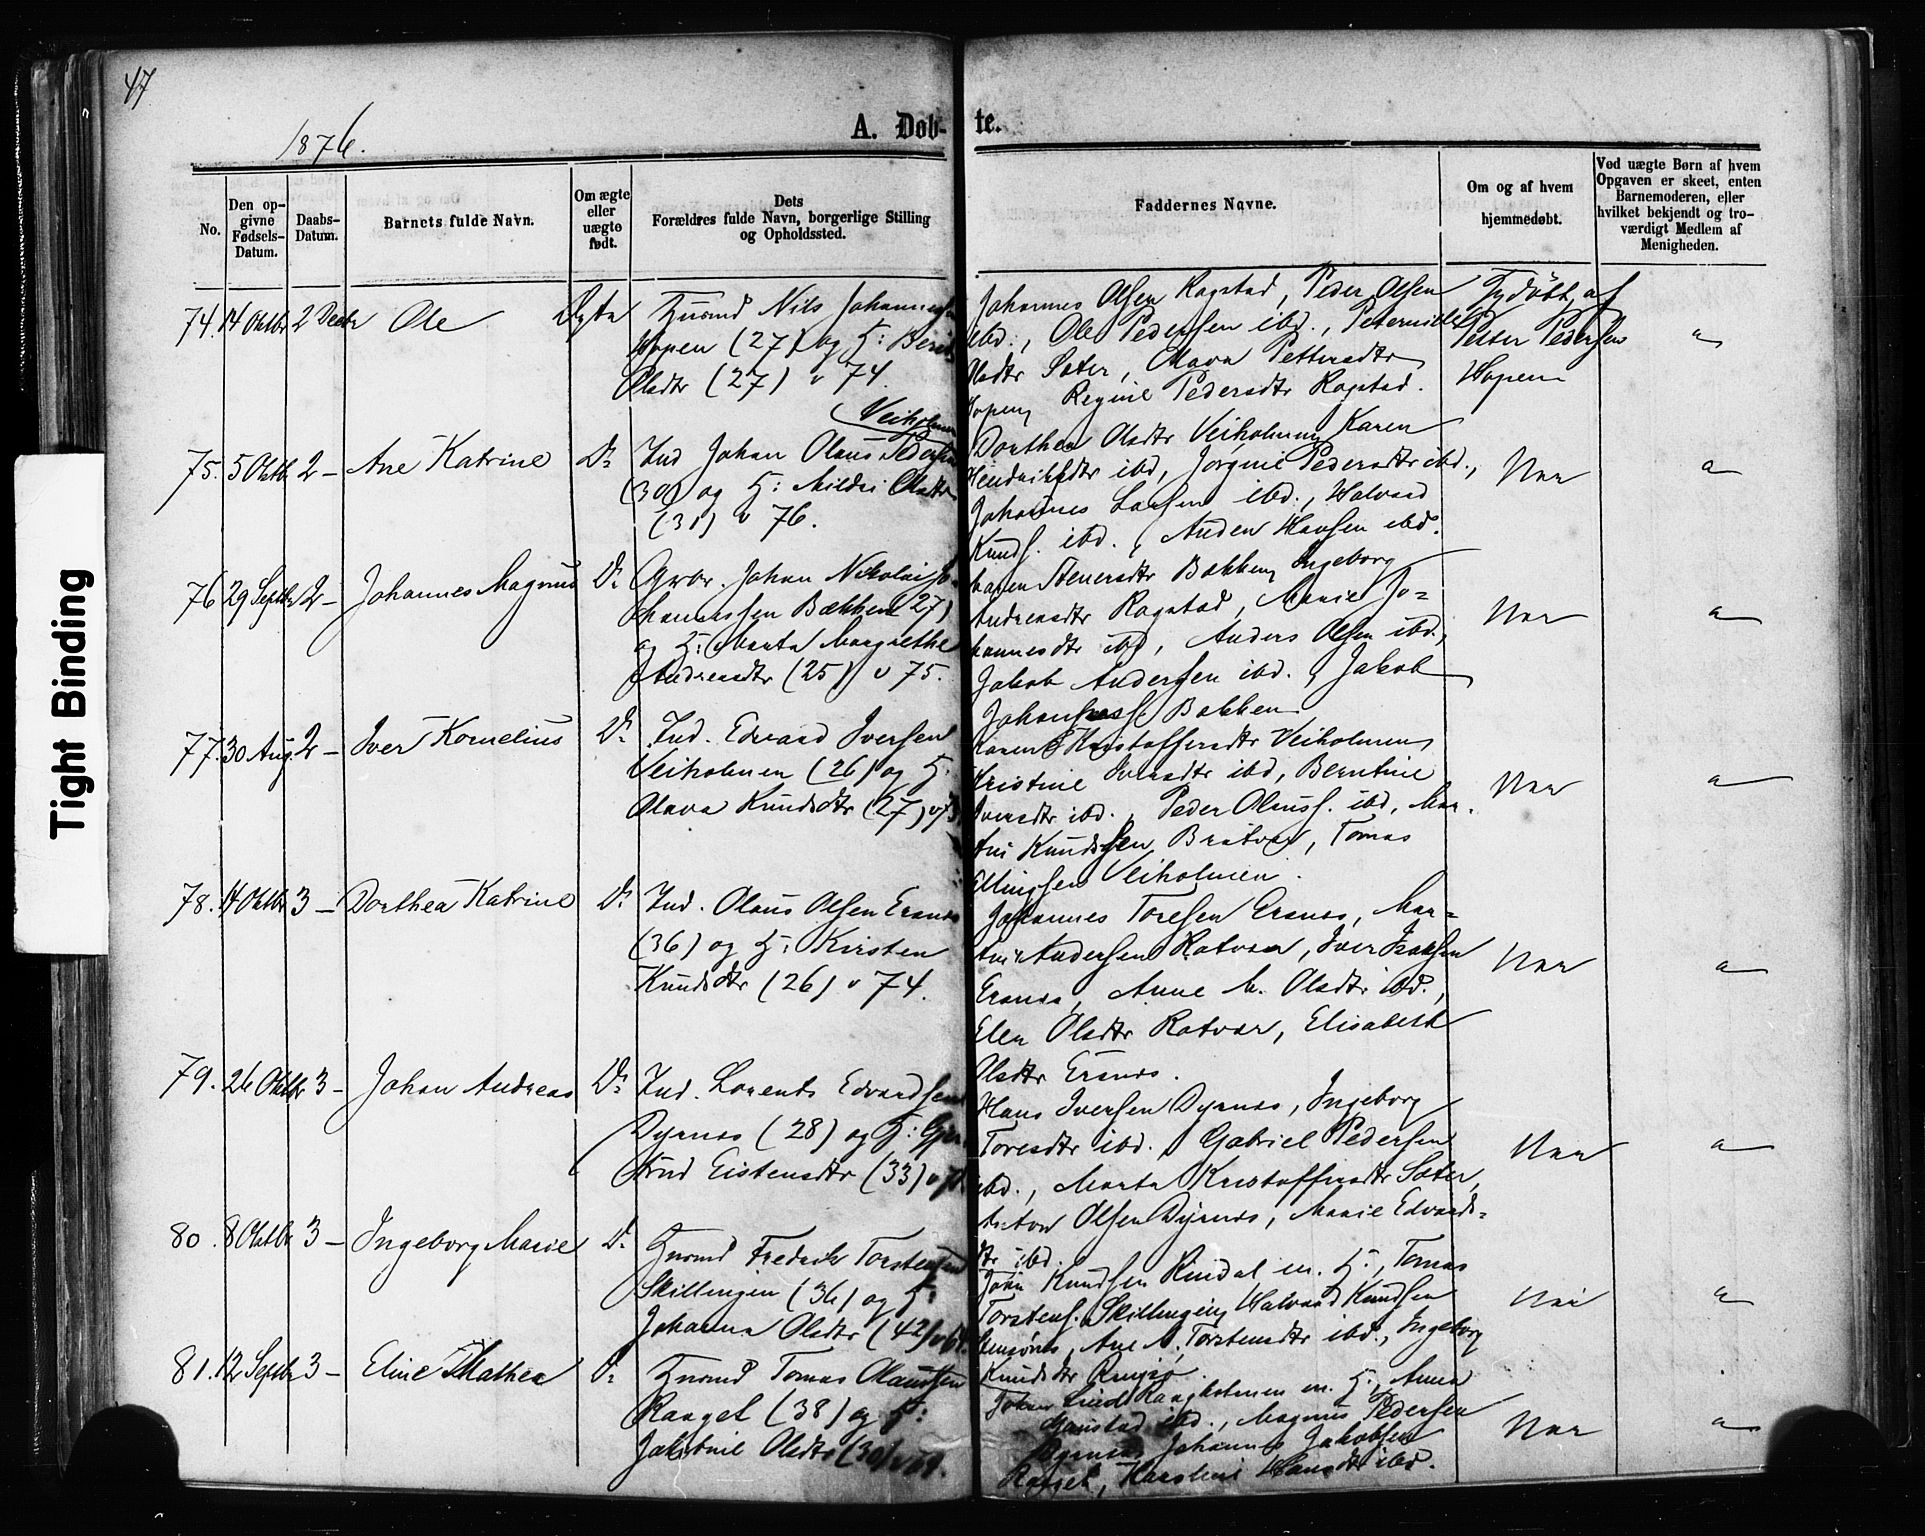 47
1876.
A. Døb-
te.
No.
Den op-
givne
Fødsels-
Datum.
Daabs-
Datum.
Barnets fulde Navn.
Om ægte
eller
uægte
født.
Dets
Forældres fulde Navn, borgerlige Stilling
og Opholdssted.
Faddernes Navne.
Om og af hvem
hjemmedøbt.
Ved uægte Børn af hvem
Opgaven er skeet, enten
Barnemoderen, eller
hvilket bekjendt og tro-
værdigt Medlem af
Menigheden.
74. 14 Oktbr 2 Decbr Ole Ægte Husmd Nils Johannessen
Hopen (27) og H: Berit
Olsdtr (27) v 74.
Johannes Olsen Ragstad, Peder Olsen
ibd., Ole Pedersen ibd., Peternille
Olsdtr Sæter, Mava Pettersdtr
Hopen, Regine Pedersdtr Ragstad.
af
Petter Pedersen
Hopen
75. 5 Oktb 2 – Ane Katrine Do Ind Johan Olaus Pedersen
Veiholmen
(30) og H: Mildri Olsdtr
(31) v 76.
Dorthea Olsdtr Veiholmen, Karen
Hendriksdtr ibd, Jørgine Pedersdtr ibd.,
Johannes Larsen ibd., Halvard
Knuds. ibd., Anden Hansen ibd.
76 29 Septbr 2 – Johannes Magnus Do Grbr. Johan Nikolai Jo-
hannessen Bækken (27)
og H: Marta Margrethe
Andreasdtr (25) v 75.
Karen Steversdtr Bakken, Ingeborg
Andreasdtr Ragstad, Marie Jo=
hannesdtr ibd, Anders Olsen ibd.,
Jakob Andersen ibd., Jakob
Johanness. Bakken
77. 30 Aug. 2 – Iver Kornelius Do Ind. Edvard Iversen
Veiholmen (26) og H.
Olava Knudsdtr (27) v 73
Karen Kristoffersdtr Veiholmen,
Kristine Iversdtr ibd, Berntine
Iversdtr ibd., Peder Olauss. ibd, Mar-
tin Knudsen Bratvær, Tomas
Ellingsen Veiholmen.
78. 14 Oktbr 3 – Dorthea Katrine Do Ind. Olaus Olsen Erenæs
(36) og H: Kirsten
Knudsdtr (26) v 74.
Johannes Toresen Erenæs, Mar=
tin Andersen Ratvær, Iver Isaksen
Erenæs, Anne M. Olsdtr ibd.,
Elen Olsdtr Ratvær, Elisabeth
Olsdtr Erenæs.
79. 26 Oktbr 3 – Johan Andreas Do Ind. Lorents Edvardsen
Dyrnæs (28) og H: Gjer-
trud Eistensdtr (33) v
Hans Iversen Dyrnæs, Ingeborg
Toresdtr ibd., Gabriel Pedersen
ibd., Marta Kristoffersdtr Sæter,
Anton Olsen Dyrnæs, Marie Edvards=
dtr ibd.
80. 8 Oktbr 3 – Ingeborg Marie Do Husmd Fredrik Torstensen
Skillingen (36) og H:
Johanna Olsdtr (42)
John Knudsen Rindal m. H., Tomas
Torstens. Skillingen, Halvard Knudsen
Ane M. Torstensdtr ibd., Ingeborg
Knudsdtr
81. 12 Septbr 3 – Eline Mathea Do Husmd Tomas Olaussen
Raaget (38) og H:
Jakobine Olsdtr (30) v 69.
Johan Lind Raagholmen m. H., Anna
ibd., Magnus Pedersen
Dyrnæs, Johannes Jakobsen
Raaget, Karoline Hansdtr ibd.
Tight Binding